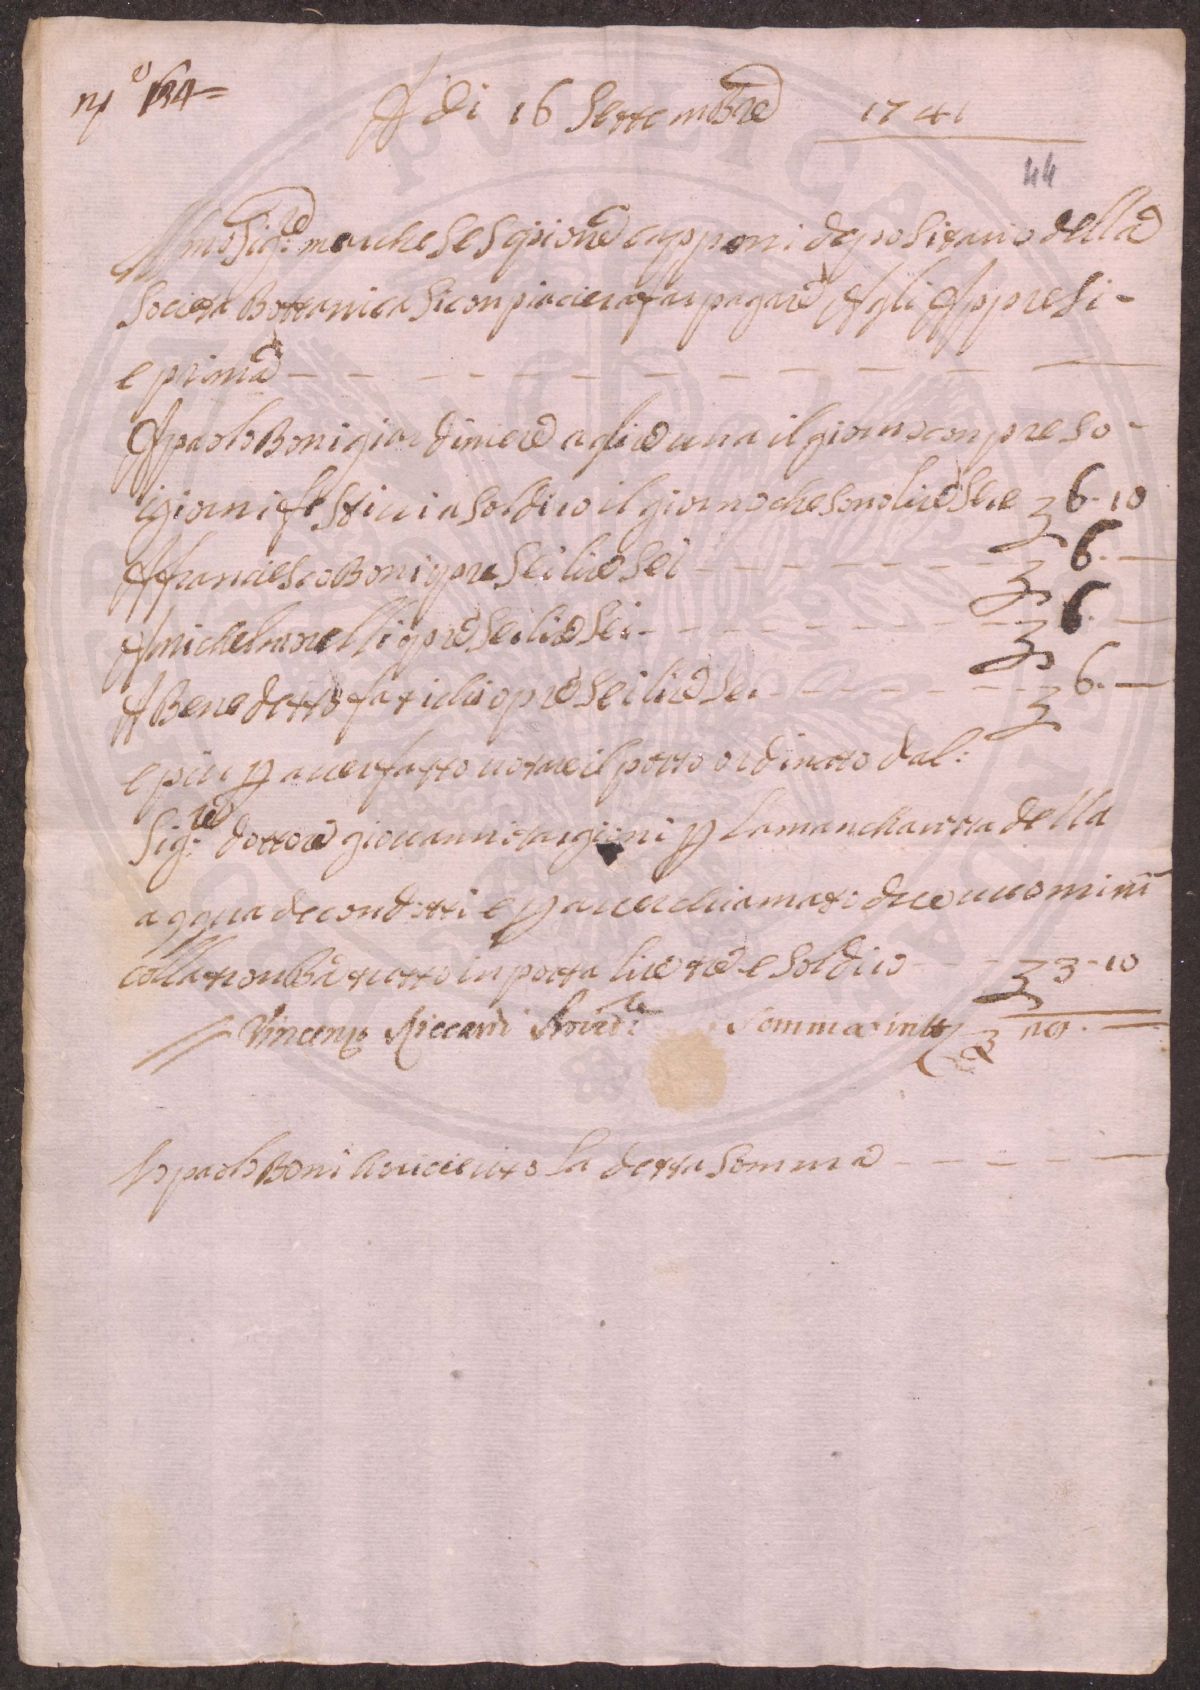 N° 134=
A di 16 Settembre 1741
44
Illmo Sig:re marchese Sepione capponi depositario della
Societa Bottanica Si conpiacera far pagare Agli Appresi-
e prima
A paolo Boni giardiniere a lire una il giorno conpreso-
i giorni festivi a soldi 10 il giorno che sono lire sei e 6.10
A francesco Boni opre sei lire sei 6.
A michel morelli opre sei lire sei 6.
A Benedetto fatichi opre sei lire sei 6.
e piu p aver fatto votare il potto ordinato dal:
Sig:re dottore giovanni targioni p la manchanza della
acqua de condotti e p aver chiamato dua uomini
tutto inporta lire tre e soldi 10 3-10
Vincenzo Riccardi Provre Somma in tto
Io paolo Boni o riceuto la detta somma